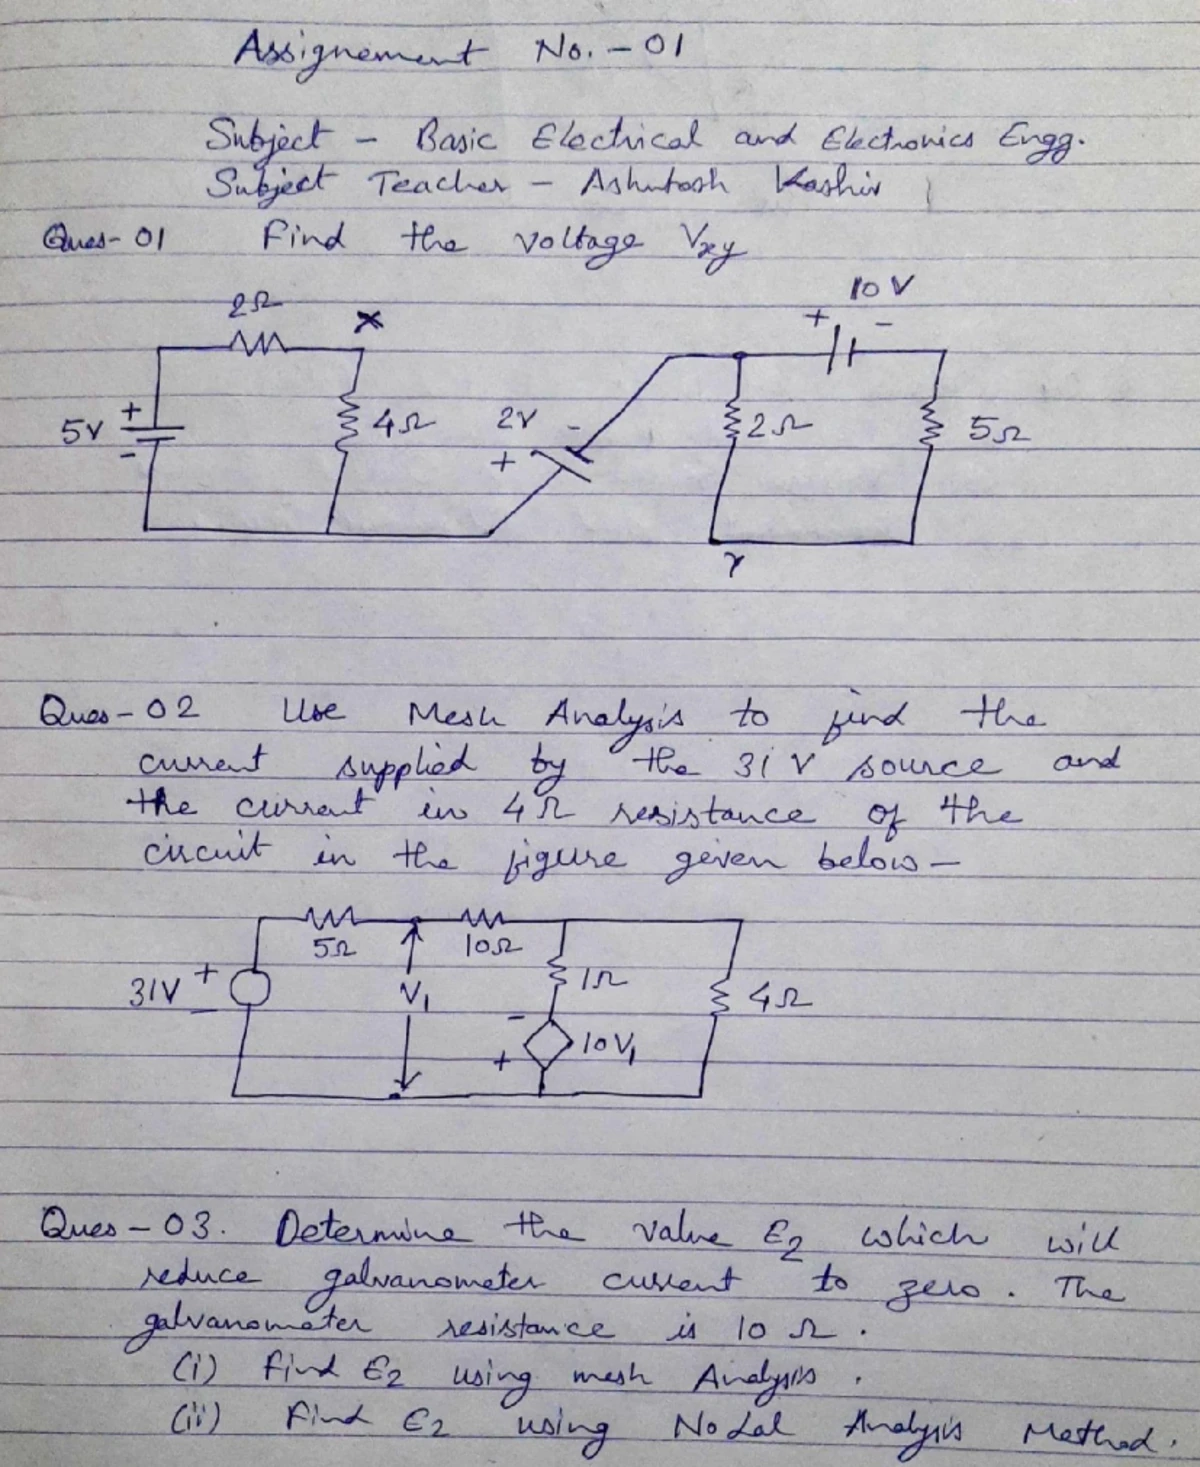 Assignement No. - 01
Subject - Basic Electrical and Electronics Engg.
Subject Teacher - Ashutosh
Ques- 01 Find the voltage Vxy
2Ω
x
10 V
+ -
5V
+
-
4Ω
2V
-
+
2Ω
5Ω
Y
Ques - 02 Use Mesh Analysis to find the
current supplied by the 31 V source and
the current in 4Ω resistance of the
circuit in the figure given below -
5Ω
10Ω
31V
+
-
V₁
1Ω
4Ω
-
+
10V₁
Ques - 03. Determine the value E₂ which will
reduce galvanometer current to zero. The
galvanometer resistance is 10 Ω.
(i) Find E₂ using mesh Analysis.
(ii) Find E₂ using Nodal Analysis Method.